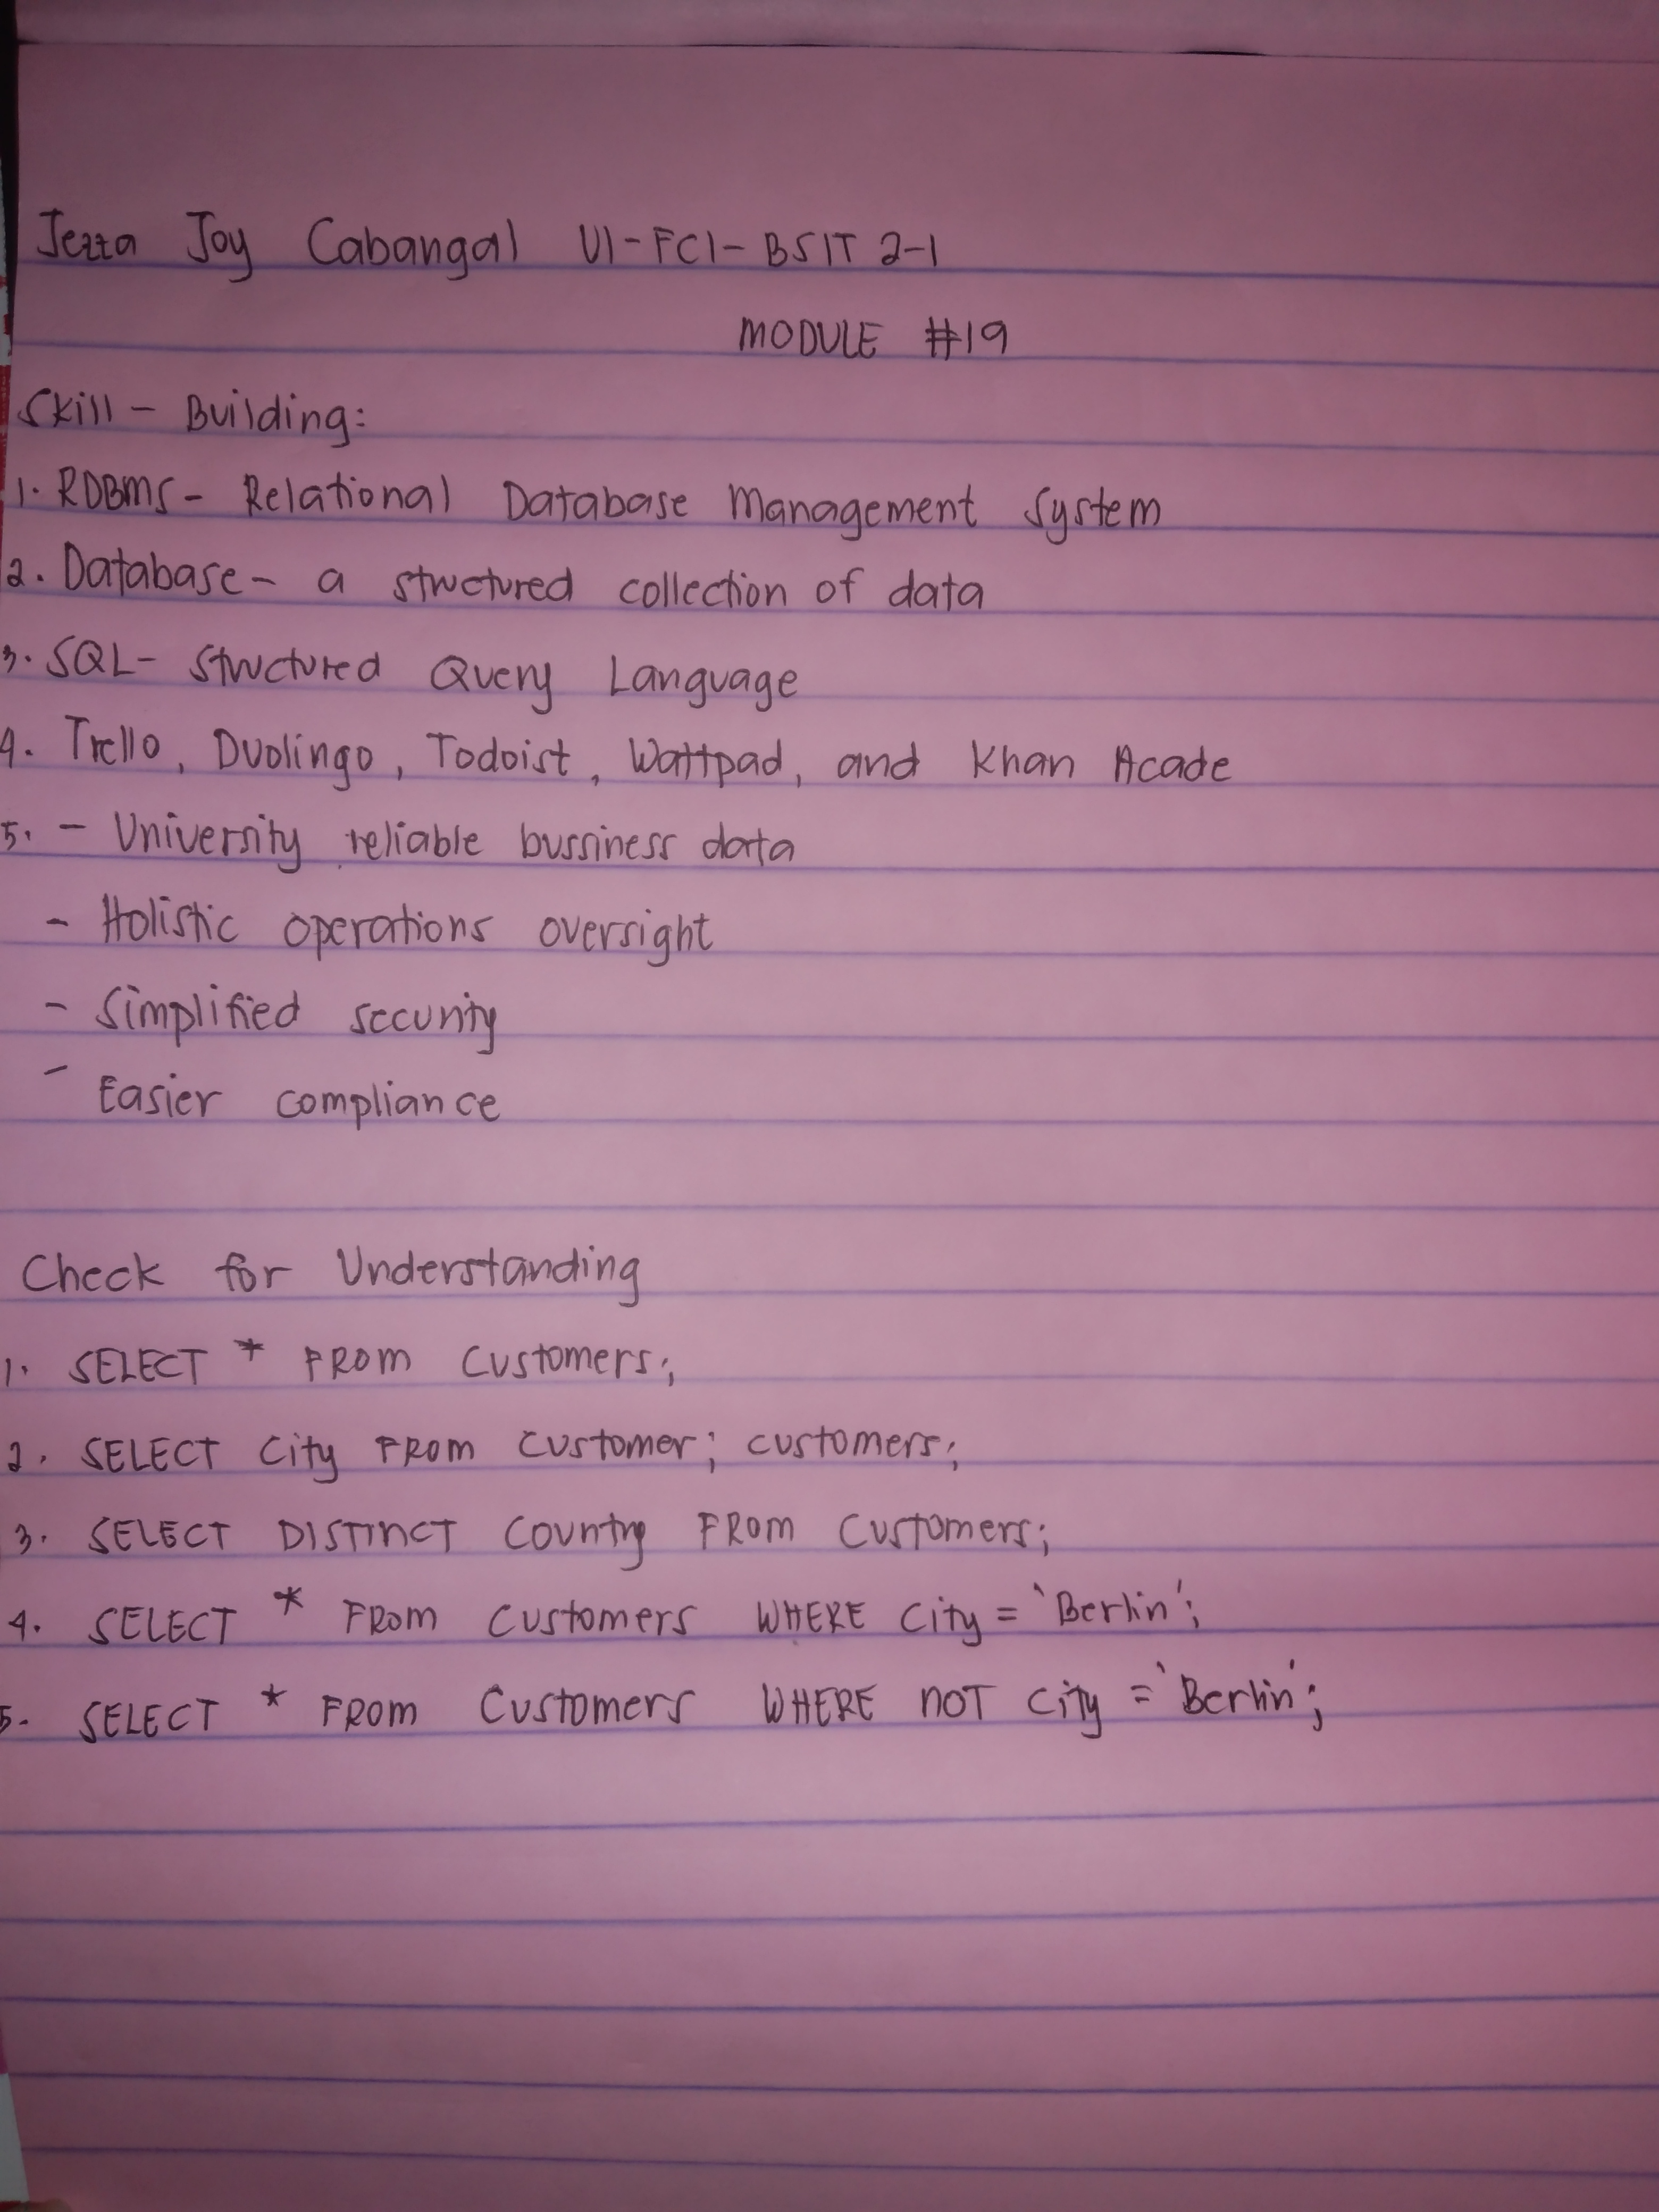 Jezza Joy Cabangal UI-FCI-BSIT 2-1
MODULE #19
Skill - Building:
1. RDBMS - Relational Database Management System
2. Database - a structured collection of data
3. SQL - Structured Query Language
4. Trello, Duolingo, Todoist, Wattpad, and Khan Acade
5. - University reliable bussiness data
- Holistic operations oversight
- Simplified security
- Easier compliance
Check for Understanding
1. SELECT * FROM Customers;
2. SELECT City FROM Customer; customers;
3. SELECT DISTINCT Country FROM Customers;
4. SELECT * FROM Customers WHERE City = 'Berlin';
5. SELECT * FROM Customers WHERE NOT City = 'Berlin';